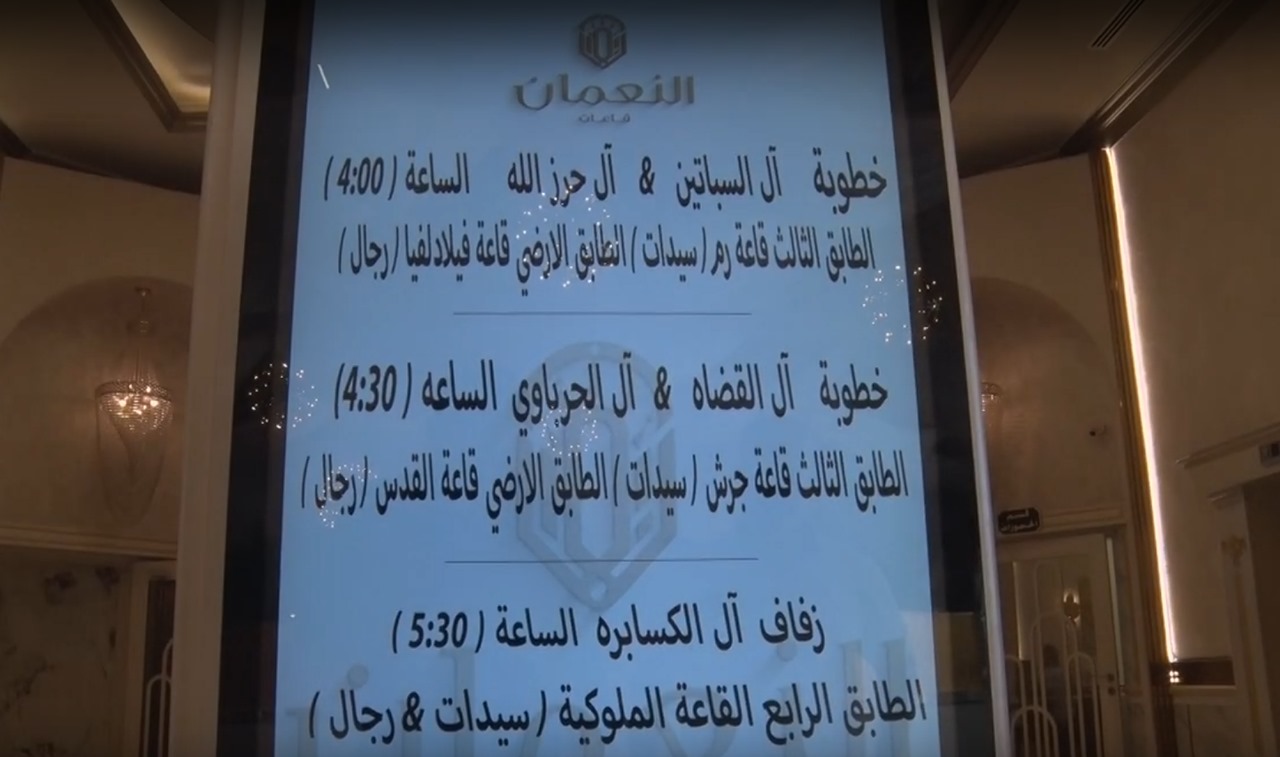 النعمان
قاعات
خطوبة آل السباتين & آل حرز الله الساعة ( 4:00 )
الطابق الثالث قاعة رم ( سيدات ) الطابق الارضي قاعة فيلادلفيا ( رجال )
خطوبة آل القضاه & آل الحرباوي الساعه ( 4:30)
الطابق الثالث قاعة جرش ( سيدات ) الطابق الارضي قاعة القدس ( رجال )
زفاف آل الكسابره الساعة ( 5:30 )
الطابق الرابع القاعة الملوكية ( سيدات & رجال )